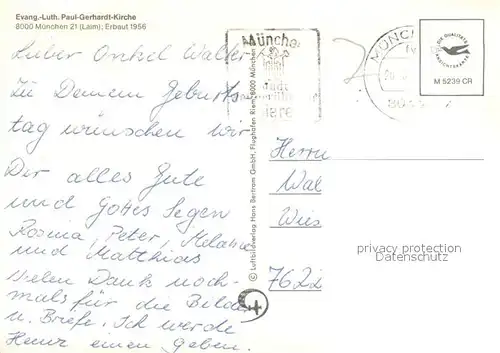 Evang.-Luth. Paul-Gerhardt-Kirche
8000 München 21 (Laim); Erbaut 1956
Lieber Onkel Walter
Zu Deinem Geburts
tag wünschen wir
Dir alles Gute
und Gottes Segen
Rosina, Peter, Melanie
und Matthias
Vielen Dank noch-
mals für die Bilder
u. Briefe. Ich werde
Heinz einen geben.
© Luftbildverlag Hans Bertram GmbH, Flughafen Riem, 8000 München
Münche
MÜNCH
DIE QUALITÄTS
ANSICHTSKARTE
M 5239 CR
Herrn
Wal
Wies
7622
privacy protection
Datenschutz